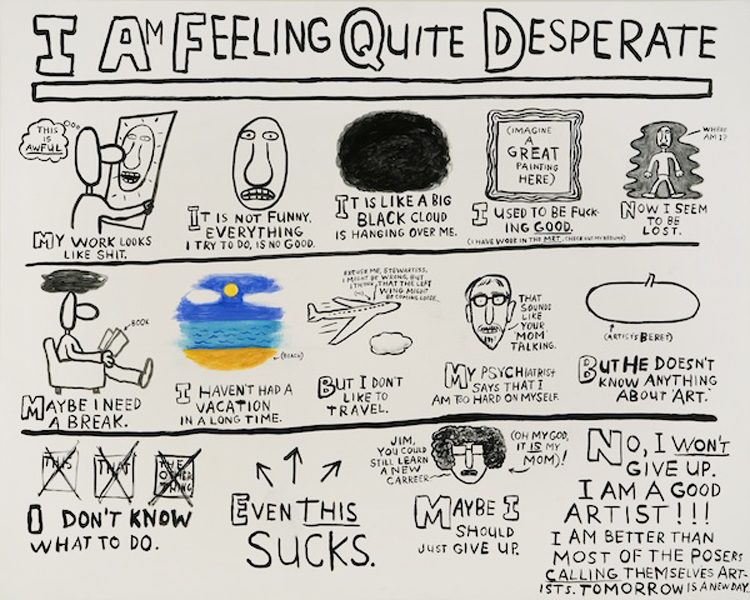 I AM FEELING QUITE DESPERATE
THIS
IS
AWFUL
MY WORK LOOKS
LIKE SHIT.
IT IS NOT FUNNY,
EVERYTHING
I TRY TO DO, IS NO GOOD.
IT IS LIKE A BIG
BLACK CLOUD
IS HANGING OVER ME.
(IMAGINE
A
GREAT
PAINTING
HERE)
I USED TO BE FUCK-
ING GOOD.
(I HAVE WORK IN THE MET, CHECK OUT MY RESUME)
WHERE
AM I?
NOW I SEEM
TO BE
LOST.
BOOK
MAYBE I NEED
A BREAK.
(BEACH)
I HAVEN'T HAD A
VACATION
IN A LONG TIME.
EXCUSE ME, STEWARTESS,
I MIGHT BE WRONG, BUT
I THINK THAT THE LEFT
WING MIGHT
BE COMING LOOSE.
(ME)
BUT I DON'T
LIKE TO
TRAVEL.
THAT
SOUNDS
LIKE
YOUR
'MOM'
TALKING.
MY PSYCHIATRIST
SAYS THAT I
AM TOO HARD ON MYSELF.
(ARTIST'S BERET)
BUT HE DOESN'T
KNOW ANYTHING
ABOUT "ART."
THIS
THAT
THE
OTHER
THING
I DON'T KNOW
WHAT TO DO.
EVEN THIS
SUCKS.
JIM,
YOU COULD
STILL LEARN
A NEW
CARREER
(OH MY GOD,
IT IS MY
MOM)!
MAYBE I
SHOULD
JUST GIVE UP.
NO, I WON'T
GIVE UP.
I AM A GOOD
ARTIST!!!
I AM BETTER THAN
MOST OF THE POSERS
CALLING THEMSELVES ART-
ISTS. TOMORROW IS A NEW DAY.